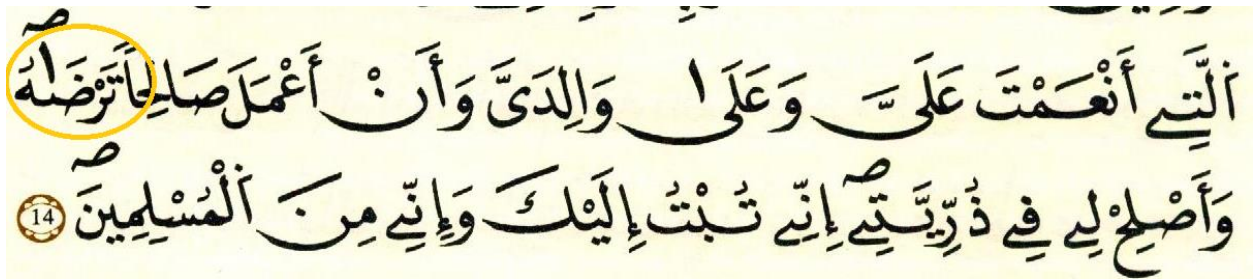 اَ۬لتِےٓ أَنْعَمْتَ عَلَىَّ وَعَلَىٰ وَٰلِدَىَّ وَأَنْ أَعْمَلَ صَٰلِحاً تَرْضَىٰهُۖ
وَأَصْلِحْ لِے فِے ذُرِّيَّتِےۖ إِنِّے تُبْتُ إِلَيْكَ وَإِنِّے مِنَ اَ۬لْمُسْلِمِينَۖ 14